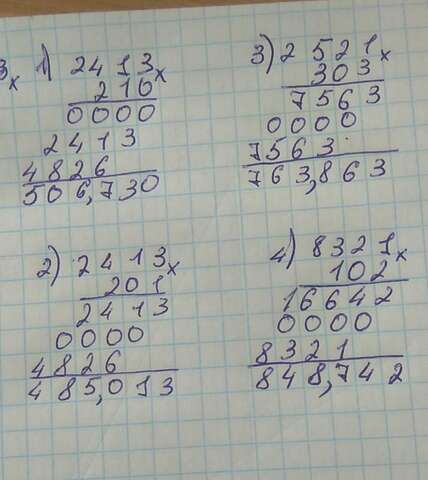 3x
1) 2413x
210
0000
2413
4826
506,730
2) 2413x
201
2413
0000
4826
485,013
3) 2521x
303
7563
0000
7563
763,863
4) 8321x
102
16642
0000
8321
848,742